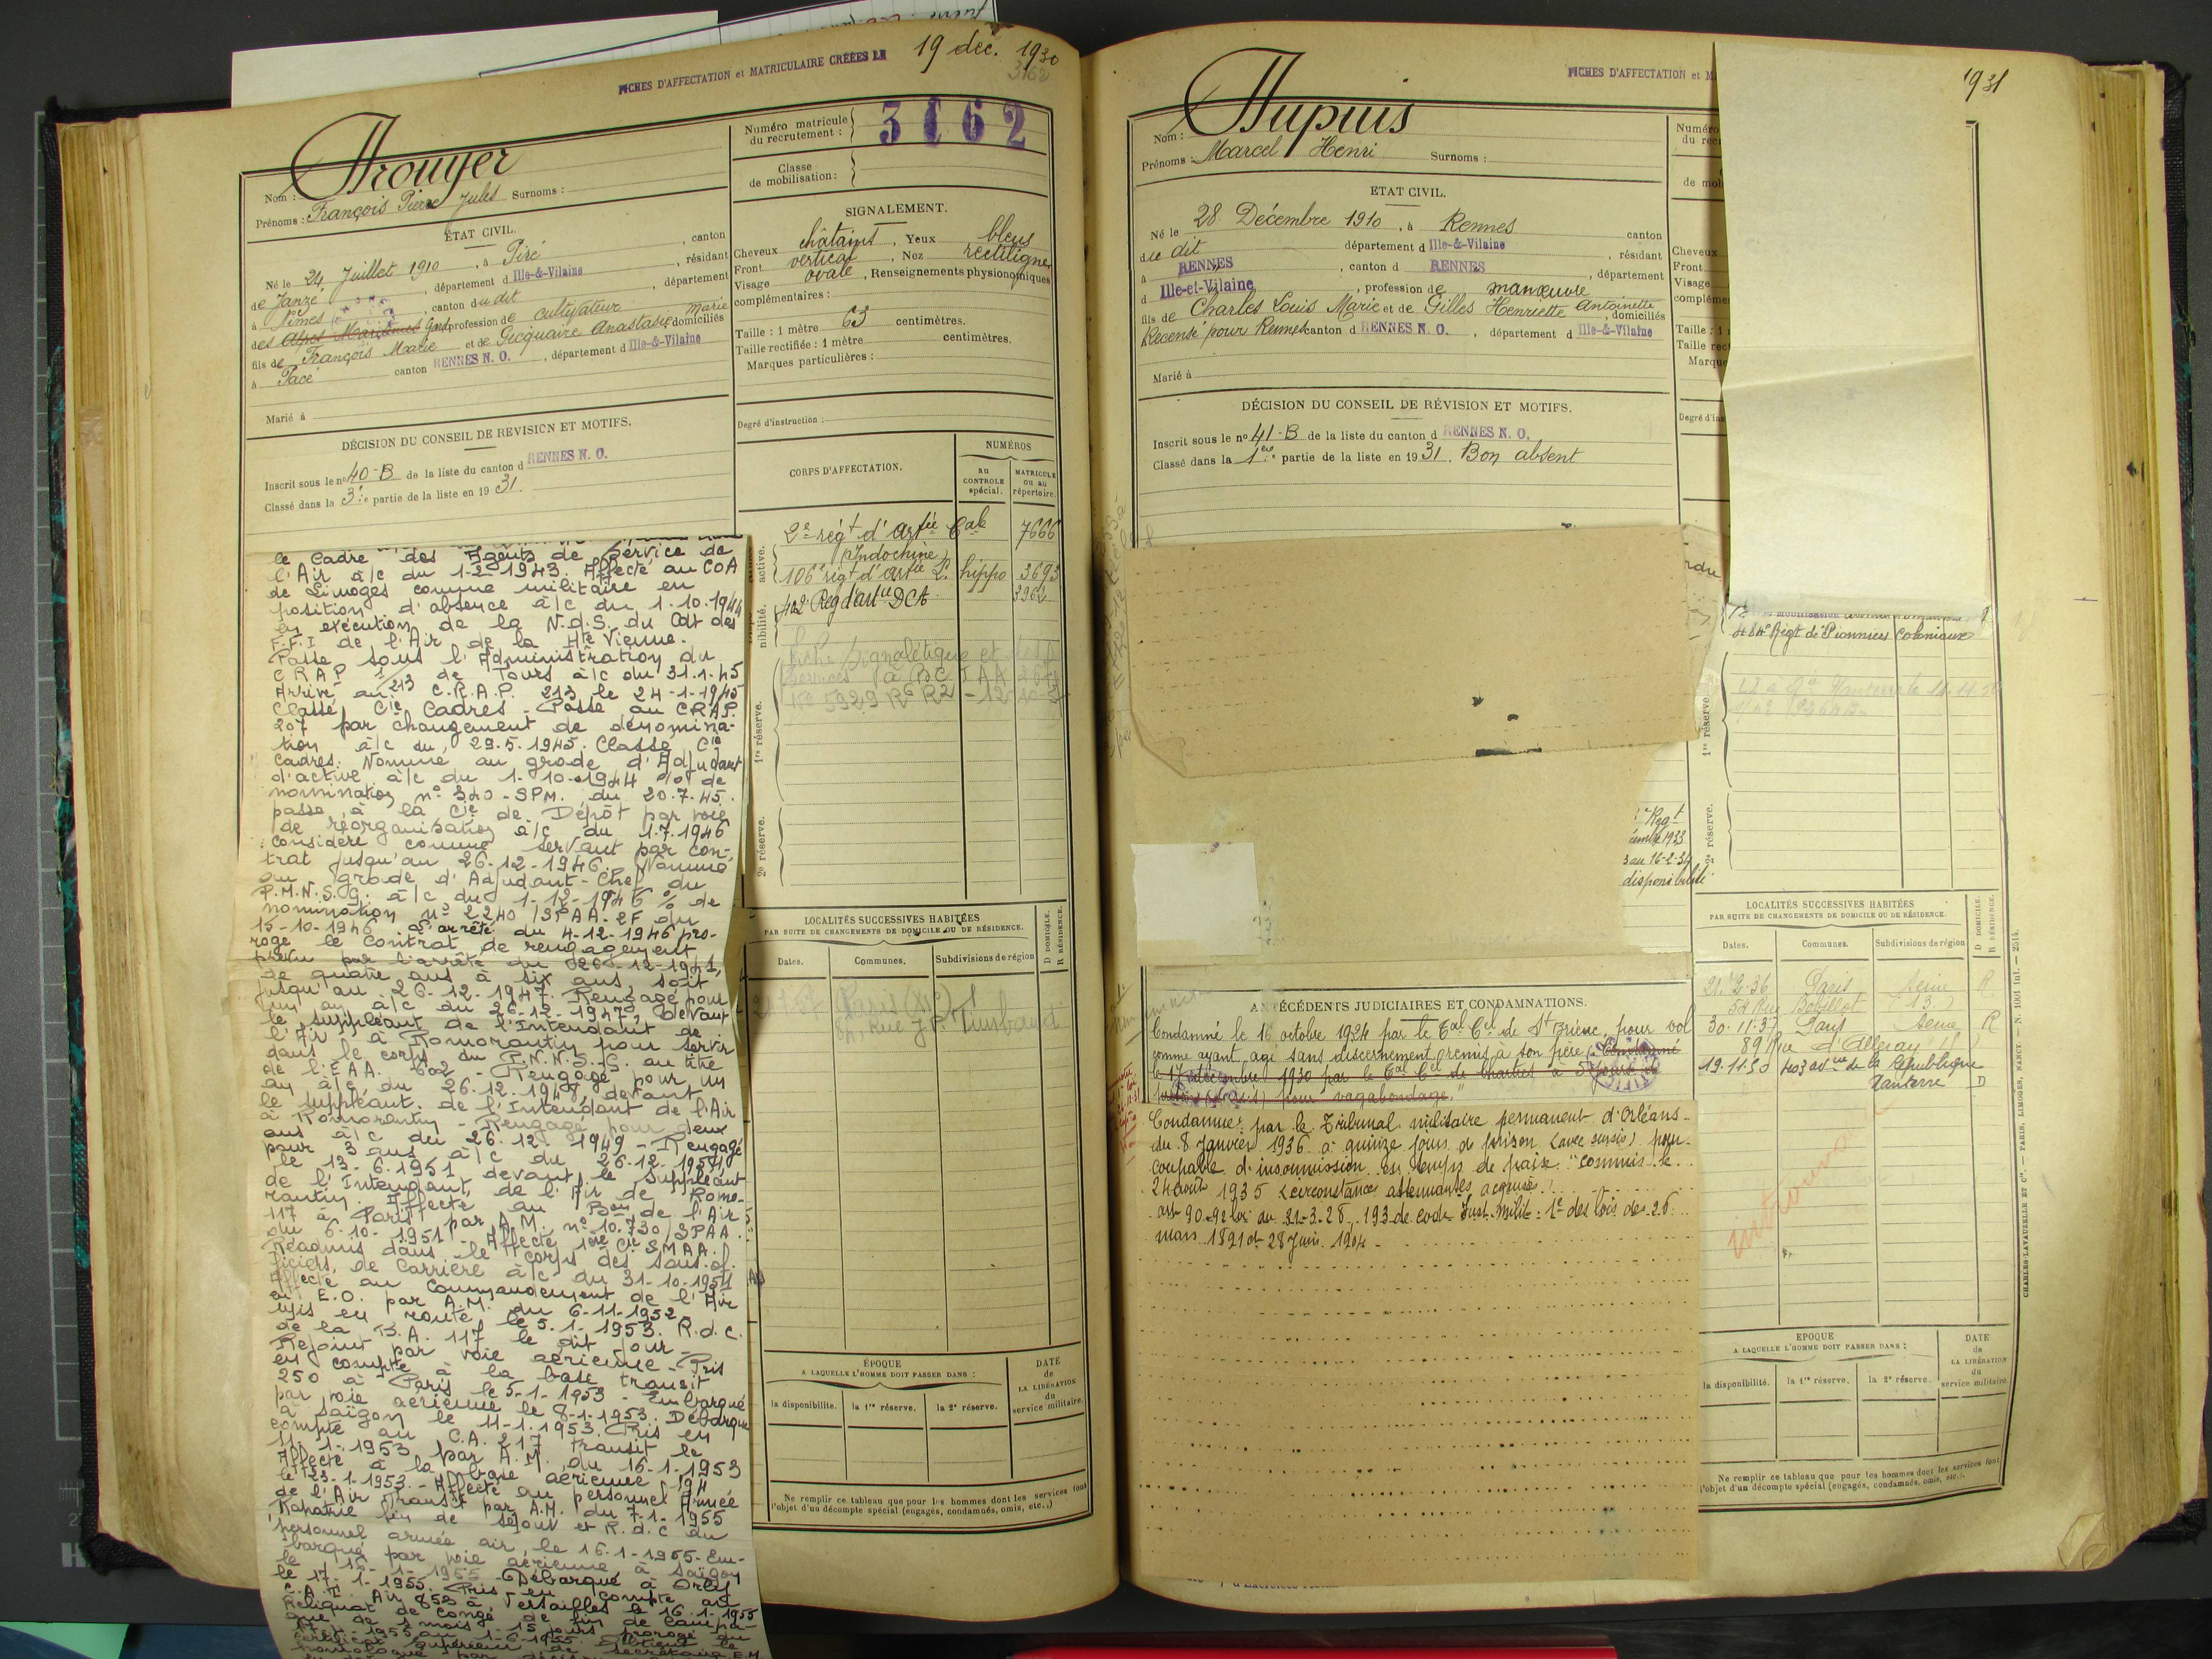 FICHES D'AFFECTATION et MATRICULAIRE CRÉÉES LE 19 déc. 1930
3162
Nom :
Prénoms : François Pierre Jules Surnoms :
Numéro matricule du recrutement :
Classe de mobilisation :
ÉTAT CIVIL.
Né le 24 Juillet 1910, à Piré, canton
de Janzé, département d Ille-&-Vilaine, résidant
à Nîmes, canton du dit, département
des Alpes Maritimes Gard profession de cultivateur
fils de François Marie et de Gicquaire Anastasie Marie domiciliés
à Pacé canton RENNES N. O., département d Ille-&-Vilaine
Marié à
DÉCISION DU CONSEIL DE REVISION ET MOTIFS.
Inscrit sous le n° 40-B de la liste du canton d RENNES N. O.
Classé dans la 3e partie de la liste en 1931.
SIGNALEMENT.
Cheveux châtains, Yeux bleus
Front vertical, Nez rectiligne
Visage ovale, Renseignements physionomiques
complémentaires :
Taille : 1 mètre 63 centimètres.
Taille rectifiée : 1 mètre centimètres.
Marques particulières :
Degré d'instruction :
CORPS D'AFFECTATION.
NUMÉROS
au CONTROLE spécial.
MATRICULE ou au répertoire.
active.
2e régt d'artie Cale 7666
(Indochine)
106e régt d'artie L. hippo 3693
nibilité.
402 Reg d'artie DCA 3962
Fiche signalétique et des
services à BC IAA
N° 5929 RG R2 - 12
1re réserve.
2e réserve.
le Cadre des Agents de Service de
l'Air à/c du 1-2-1943. Affecté au COA
de Limoges comme militaire en
position d'absence à/c du 1.10.1944
en exécution de la N.d.S. du Cdt des
F.F.I de l'Air de la Hte Vienne.
Passe sous l'Administration du
C.R.A.P 1/213 de Tours à/c du 31.1.45
Arrivé au C.R.A.P. 213 le 24-1-1945
Classé Cie Cadres - Passe au CRAP.
207 par changement de dénomina-
tion à/c du 29.5.1945. Classé Cie
Cadres. Nommé au grade d'Adjudant
d'active à/c du 1-10-1944 % de
nomination n° 340-SPM. du 20.7.45.
passe à la Cie de Dépôt par voie
de réorganisation à/c du 1.7.1946
Considéré comme servant par con-
trat jusqu'au 26-12-1946. Nommé
au grade d'Adjudant-Chef du
P.M.N.S.G. à/c du 1-12-1946 % de
nomination n° 2240/SPAA-2F du
15-10-1946. L'arrêté du 4-12-1946 pro-
roge le contrat de rengagement
prévu par l'arrêté du 26-12-1941,
de quatre ans à six ans, soit
jusqu'au 26-12-1947. Rengagé pour
un an à/c du 26-12-1947, devant
le suppléant de l'Intendant de
l'Air à Romorantin pour servir
dans le corps du P.N.N.S.G. au titre
de l'E.A.A. 602 - Rengagé pour un
an à/c du 26.12.1948, devant
le suppléant de l'Intendant de l'Air
à Romorantin - Rengagé pour deux
ans à/c du 26.12.1949 - Rengagé
pour 3 ans à/c du 26-12-1951,
le 13-6.1951 devant le suppléant
de l'Intendant de l'Air de Romo-
rantin. Affecté au Bon de l'Air
117 à Paris par A.M. n° 10.730/SPAA
du 6-10-1951 - Affecté 1ère Cie SMAA.
Réadmis dans le corps des sous-of-
ficiers de carrière à/c du 31-10-1951
Affecté au Commandement de l'Air
en E.O. par A.M. du 6-11-1952.
Mis en route le 5.1.1953. R.d.c.
de la B.A. 117 le dit jour -
Rejoint par voie aérienne - Pris
en compte à la base transit
250 à Paris le 5-1-1953 - Embarqué
par voie aérienne le 8-1-1953. Débarqué
à Saïgon le 11-1-1953. Pris en
compte au C.A. 217 transit le
11-1-1953, par A.M. du 16-1-1953
Affecté à la base aérienne 194
le 23-1-1953 - Affecté au personnel Armée
de l'Air transit par A.M. du 7-1-1955
Rapatrié fin de séjour et R.d.c du
personnel armée air, le 16.1-1955 - Em-
barqué par voie aérienne à Saïgon
le 16-1-1955 - Débarqué à Orly
le 17-1-1955. Pris en compte au
C.A.T. Air 852 à Versailles le 16-1-1955
Reliquat de congé de fin de campa-
gne de 1 mois 15 jours prorogé du
1955 au 1-6-1955. Obtient le
certificat supérieur de secrétaire E.M.
LOCALITÉS SUCCESSIVES HABITÉES
PAR SUITE DE CHANGEMENTS DE DOMICILE OU DE RÉSIDENCE.
D DOMICILE. R RÉSIDENCE.
Dates. Communes. Subdivisions de région
Paris
Rue J.P. Timbaud
ÉPOQUE
A LAQUELLE L'HOMME DOIT PASSER DANS :
la disponibilité. la 1re réserve. la 2e réserve.
DATE de LA LIBÉRATION du service militaire
Ne remplir ce tableau que pour les hommes dont les services font
l'objet d'un décompte spécial (engagés, condamnés, omis, etc..,)
FICHES D'AFFECTATION et M
1931
Nom : Dupuis
Prénoms : Marcel Henri Surnoms :
Numéro
du rec
de mob
ETAT CIVIL.
Né le 28 Décembre 1910, à Rennes canton
du dit département d Ille-&-Vilaine, résidant
à RENNES, canton d RENNES, département
d Ille-et-Vilaine, profession de manœuvre
fils de Charles Louis Marie et de Gilles Henriette Antoinette, domiciliés
Recensé pour Rennes canton d RENNES N. O., département d Ille-&-Vilaine
Marié à
Cheveux
Front
Visage
complémen
Taille : 1
Taille rec
Marque
Degré d'ins
DÉCISION DU CONSEIL DE RÉVISION ET MOTIFS.
Inscrit sous le n° 41-B de la liste du canton d RENNES N. O.
Classé dans la 1ere partie de la liste en 1931. Bon absent
484e Régt de Pionniers Coloniaux
1re réserve.
2e réserve.
Regt
1933
au 16-2-34
disponibilité
ANTÉCÉDENTS JUDICIAIRES ET CONDAMNATIONS.
Condamné le 16 octobre 1924 par le Cal Cel de St Brieuc, pour vol
comme ayant agi sans discernement, remis à son père. Condamné
le 17 décembre 1930 par le Cal Cel de Chartres à 5 jours de
prison (sursis) pour vagabondage."
Condamné par le Tribunal militaire permanent d'Orléans
du 8 Janvier 1936 à quinze jours de prison (avec sursis) pour
coupable d'insoumission en temps de paix "commis le
24 août 1935 (circonstances atténuantes acquises)
art 90-92 loi du 31-3-28, 193 de code Just. Milit. 1e des lois des 26
mars 1891 et 28 Juin 1904 -
LOCALITÉS SUCCESSIVES HABITÉES
PAR SUITE DE CHANGEMENTS DE DOMICILE OU DE RÉSIDENCE.
D DOMICILE. R RÉSIDENCE.
Dates. Communes. Subdivisions de région
21.2.36 Paris Seine R
54 Rue Bobillot (13.)
30.11.37 Paris Seine R
89 Rue d'Alleray
19.11.50 403 avue de la République
Nanterre D
EPOQUE
A LAQUELLE L'HOMME DOIT PASSER DANS :
la disponibilité. la 1re réserve. la 2e réserve.
DATE de LA LIBÉRATION du service militaire
Ne remplir ce tableau que pour les hommes dont les services font
l'objet d'un décompte spécial (engagés, condamnés, omis, etc.).
CHARLES-LAVAUZELLE ET Cie. — PARIS, LIMOGES, NANCY — N. 1001 int. — 2514.